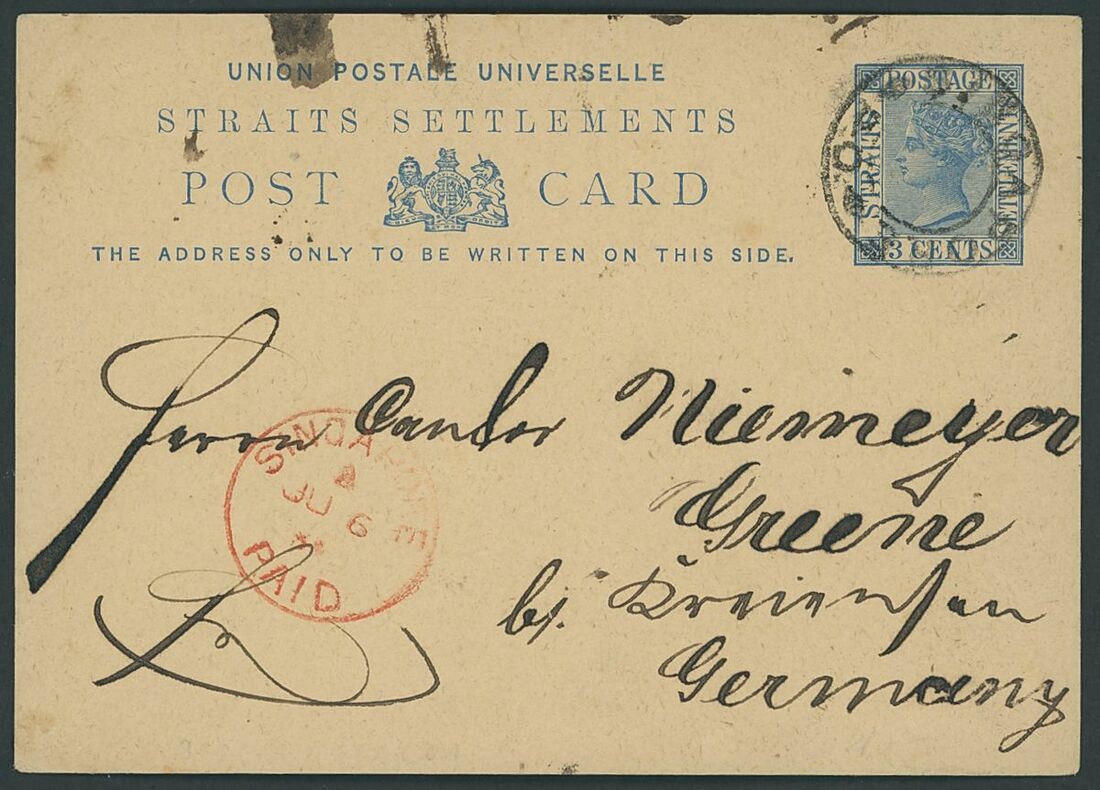 UNION POSTALE UNIVERSELLE
STRAITS SETTLEMENTS
POST CARD
THE ADDRESS ONLY TO BE WRITTEN ON THIS SIDE.
POSTAGE
STRAITS
SETTLEMENTS
3 CENTS
Herrn Cantor Niemeyer
Greene
b/. Kreiensen
Germany
SINGAPORE
JU 6
PAID